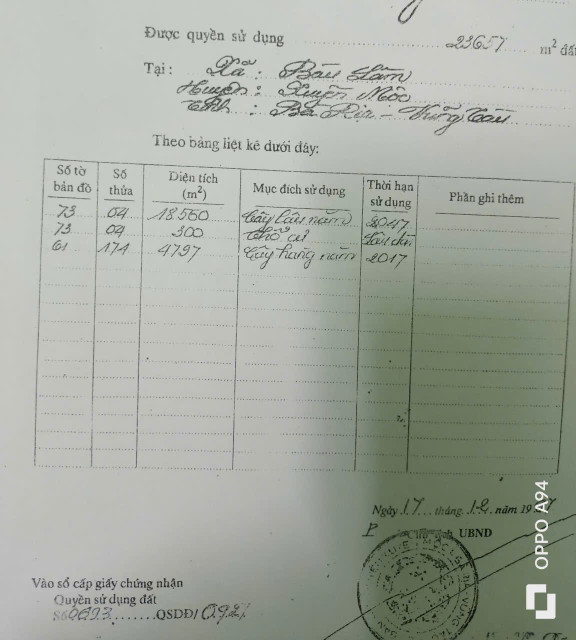 Được quyền sử dụng 23657 m² đất
Tại: Xã : Bàu Lâm
Huyện : Xuyên Mộc
Tỉnh : Bà Rịa - Vũng Tàu
Theo bảng liệt kê dưới đây:
Số tờ bản đồ Số thửa Diện tích (m²) Mục đích sử dụng Thời hạn sử dụng Phần ghi thêm
73 04 18560 Cây lâu năm 2047
73 04 300 Thổ cư Lâu dài
61 174 4797 Cây hàng năm 2017
Ngày 17 tháng 12 năm 19
UBND
Vào sổ cấp giấy chứng nhận
Quyền sử dụng đất
Số QSDĐ/
OPPO A94